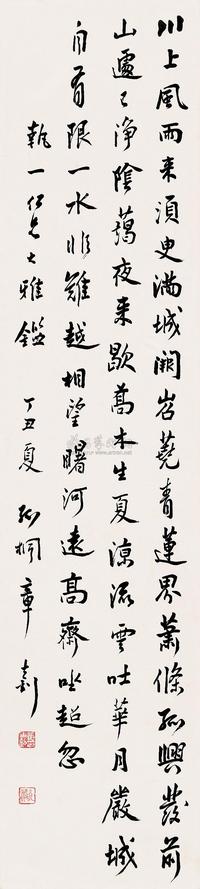 川上風雨来須臾滿城闕岧蕘青蓮界蕭條孤興發前
山遽已淨陰靄夜来歇喬木生夏涼流雲吐華月嚴城
自有限一水非難越相望曙河遠高齋坐超忽
執一仁兄大雅鑑 丁丑夏 孤桐章士釗